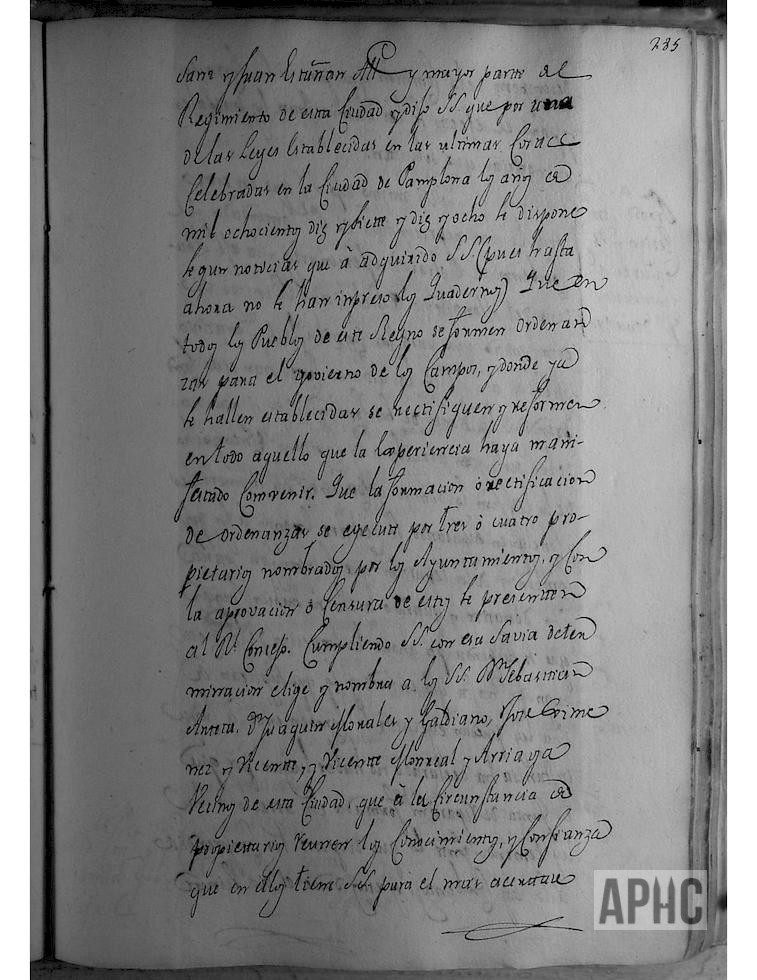 285
Sanz y Juan Estuñan All y mayor parte del
Regimiento de esta Ciudad y dijo SS. que por una
de las Leyes Establecidas en las ultimas Cortes
Celebradas en la Ciudad de Pamplona los años de
mil ochocientos diez y siette y diez y ocho se dispone
segun noticias que à adquirido S.S. (pues hasta
ahora no se han inpreso los Quadernos) Que en
todos los Pueblos de este Reyno se formen Ordenan
zas para el govierno de los Campos, y donde ya
se hallen establecidas se rectifiquen y reformen
en todo aquello que la Experiencia haya mani-
festado Comvenir. Que la formacion ò rectificacion
de Ordenanzas se egecute por tres ò cuatro pro-
pietarios nombrados por los Ayuntamientos, y Con
la aprovacion ò Censura de estos se presentten
al Rl. Consejo. Cumpliendo SS. con esa Savia deter
minacion elige y nombra a los SS. Dn. Sebastian
Joaquin Morales y Galdiano, Jose Gime
nez y Vicente, y Vicentte Monreal y Arriaga
Vecinos de esta Ciudad, que à la Circunstancia de
propiettarios reunen los Conocimientos, y Confianza
que en ellos tiene SS. para el mas
APHC